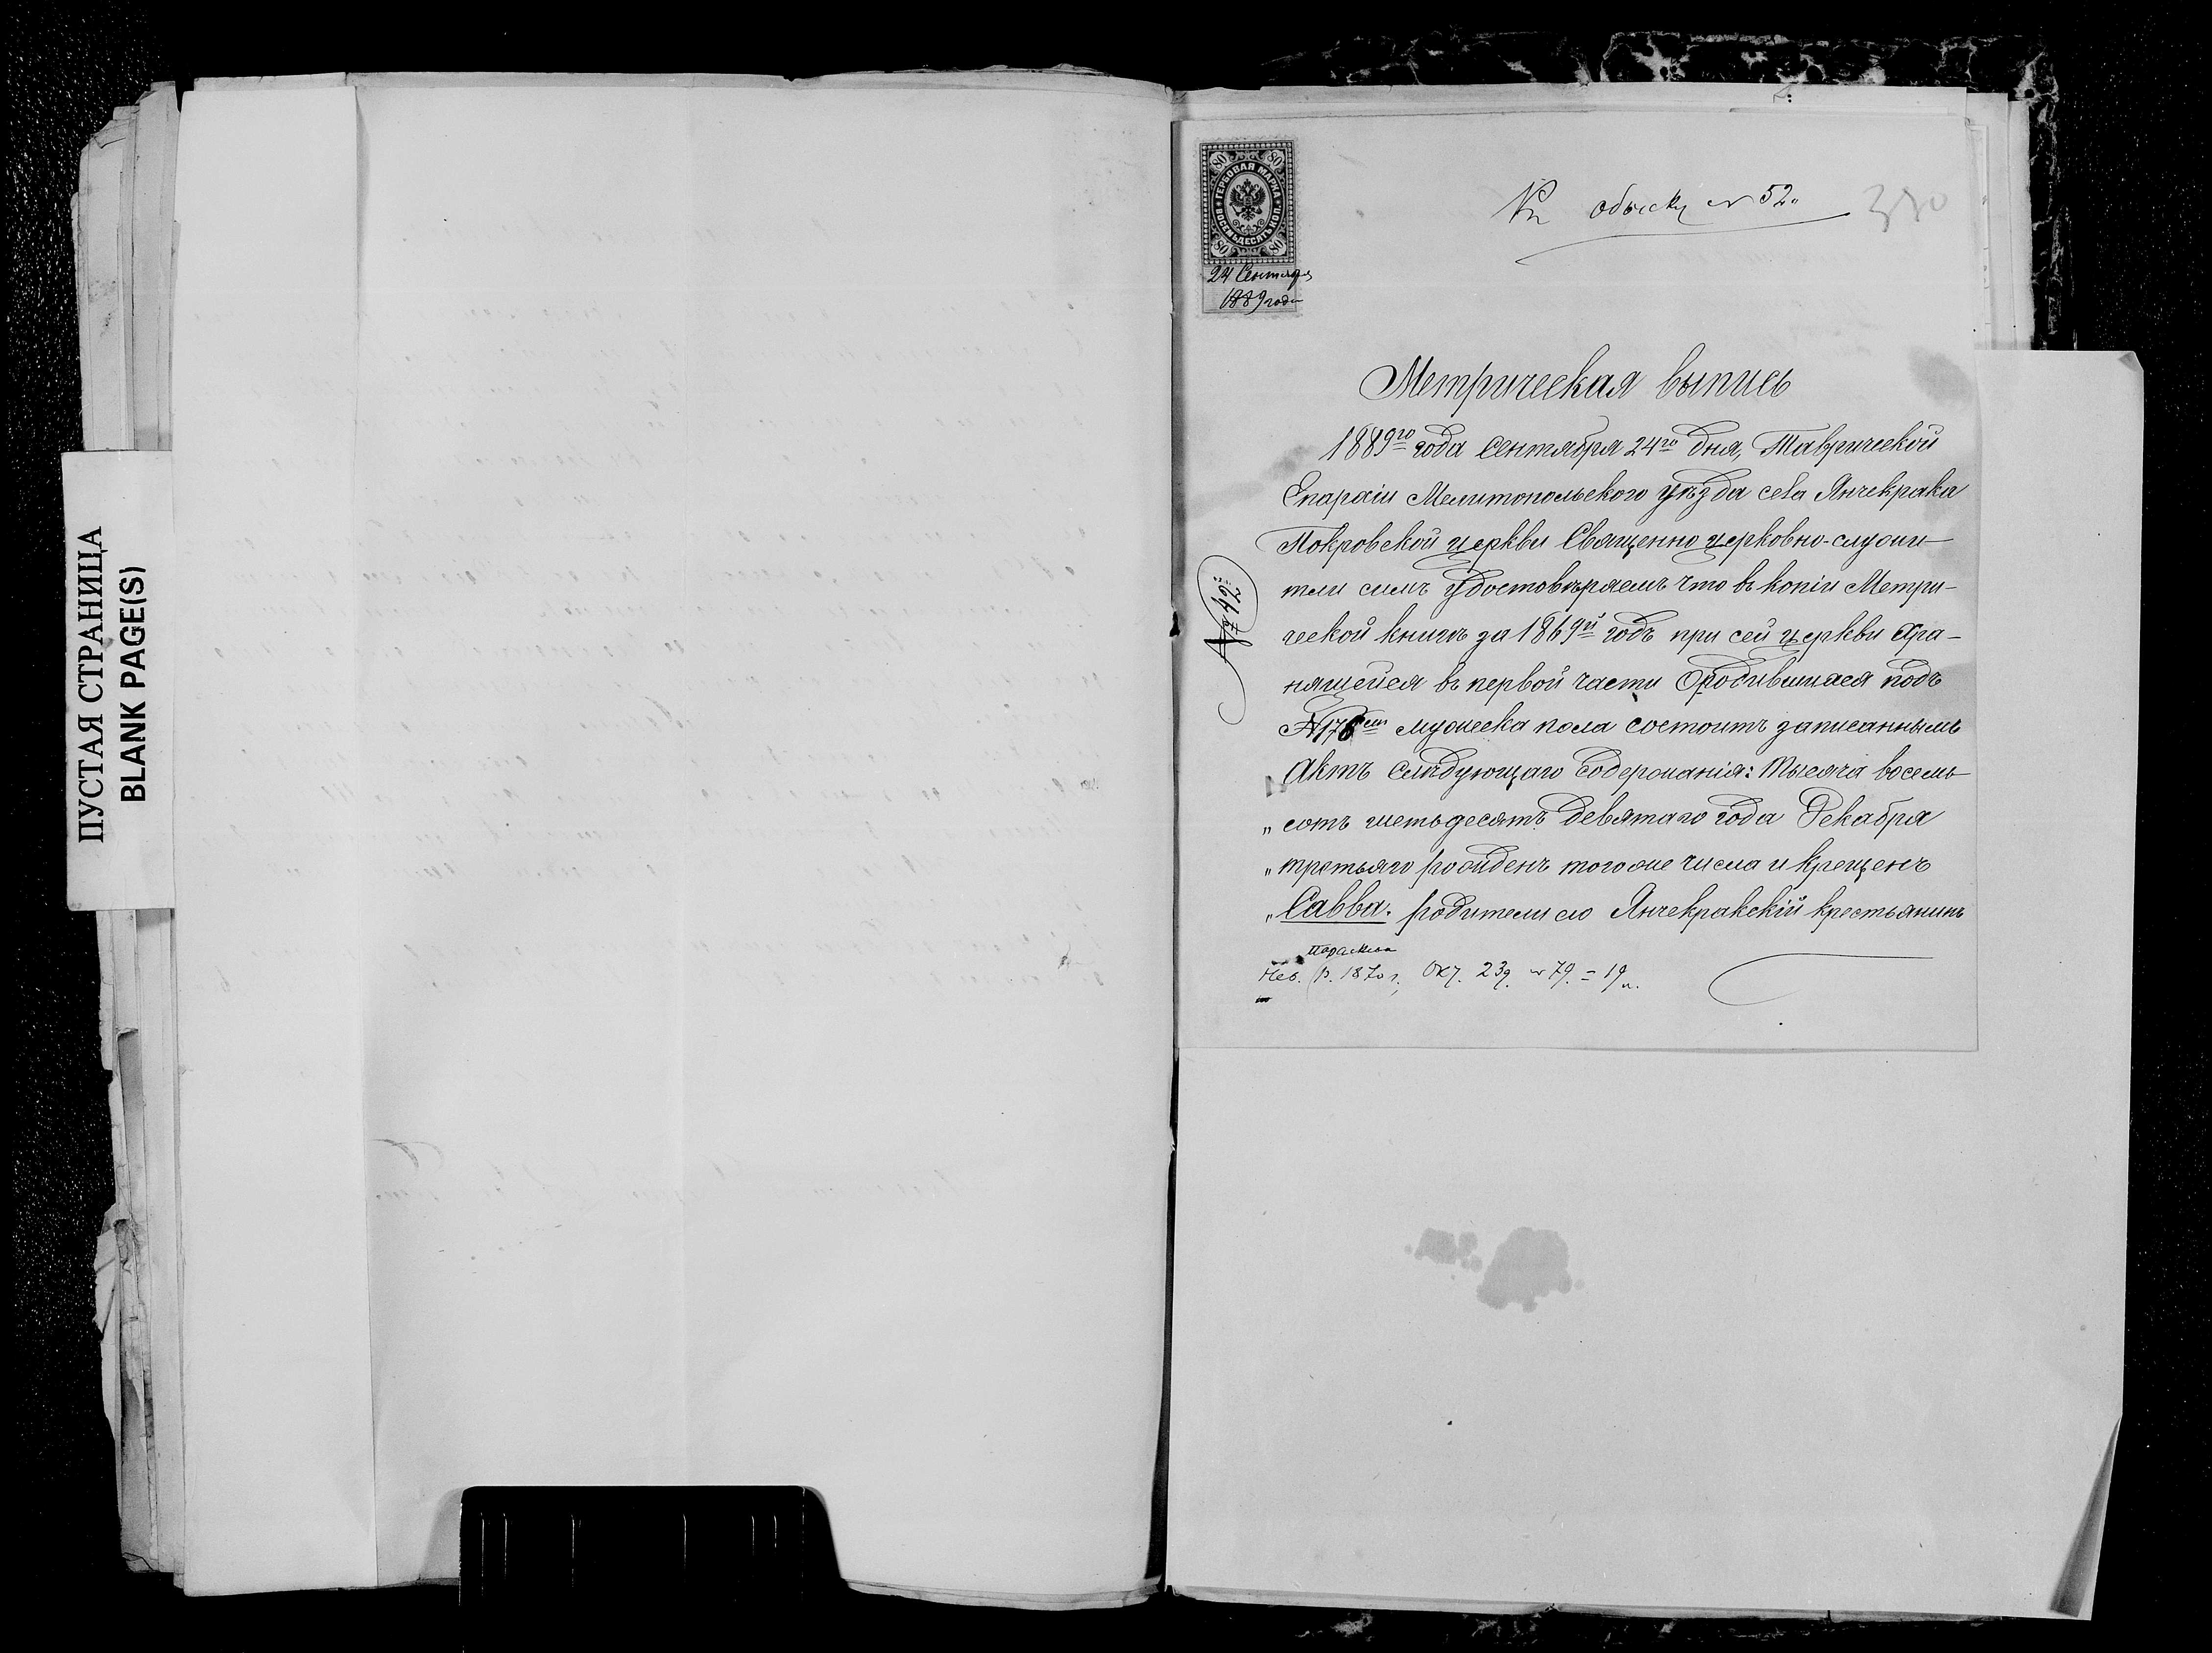 ПУСТАЯ СТРАНИЦА
BLANK PAGE(S)
80 80
ГЕРБОВАЯ МАРКА
ВОСЕМЬДЕСЯТЪ КОП.
80 80
24 Сентября
1889 года
Къ обыску № 52.
№ 492
Метрическая выпись
1889го года Сентября 24го дня, Таврической
Епархіи Мелитопольского уѣзда села Янчекрака
Покровской церкви Священно церковно-служи
тели симъ удостовѣряемъ что въ копіи Метри-
ческой книгѣ за 1869й годъ при сей церкви хра-
нящейся въ первой части о родившихся подъ
№ 176 мужеска пола состоитъ записаннымъ
актъ слѣдующаго содержанія: Тысяча восемь
„ сотъ шетьдесятъ девятаго года Декабря
„ третьяго рожденъ того же числа и крещенъ
„ Савва. родители его Янчекракскій крестьянинъ
Параскева
Нев. р. 1870 г. Окт. 23д. № 79. = 19 л.